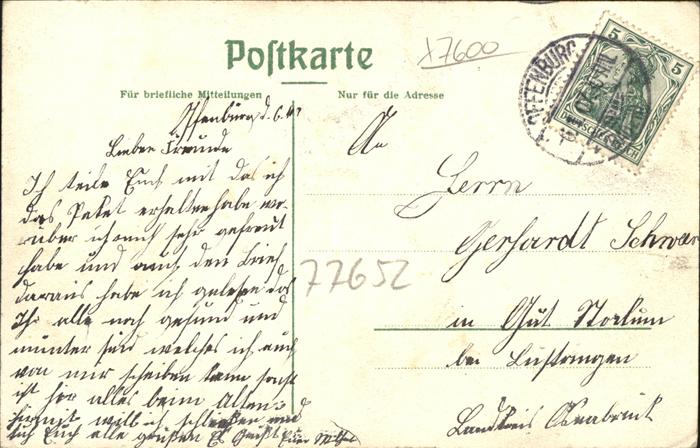 Postkarte
x7600
Für briefliche Mitteilungen
Nur für die Adresse
OFFENBURG
5 5
Offenburg d. 6.
Lieber Freunde
Ich teile Euch mit das ich
das Paket erhalten habe wo-
rüber ich mich sehr gefreut
habe und auch den Brief
daraus habe ich gelesen das
Ihr alle noch gesund und
munter seid welches ich auch
von mir schreiben kann sonst
ist hir alles beim Alten.
Hirmit will ich schließen und
ich Euch alle grüßen
An
Herrn
Gerhardt Schwar
in Gut Stockum
bei Lüstringen
Landkreis Osnabrück
77652